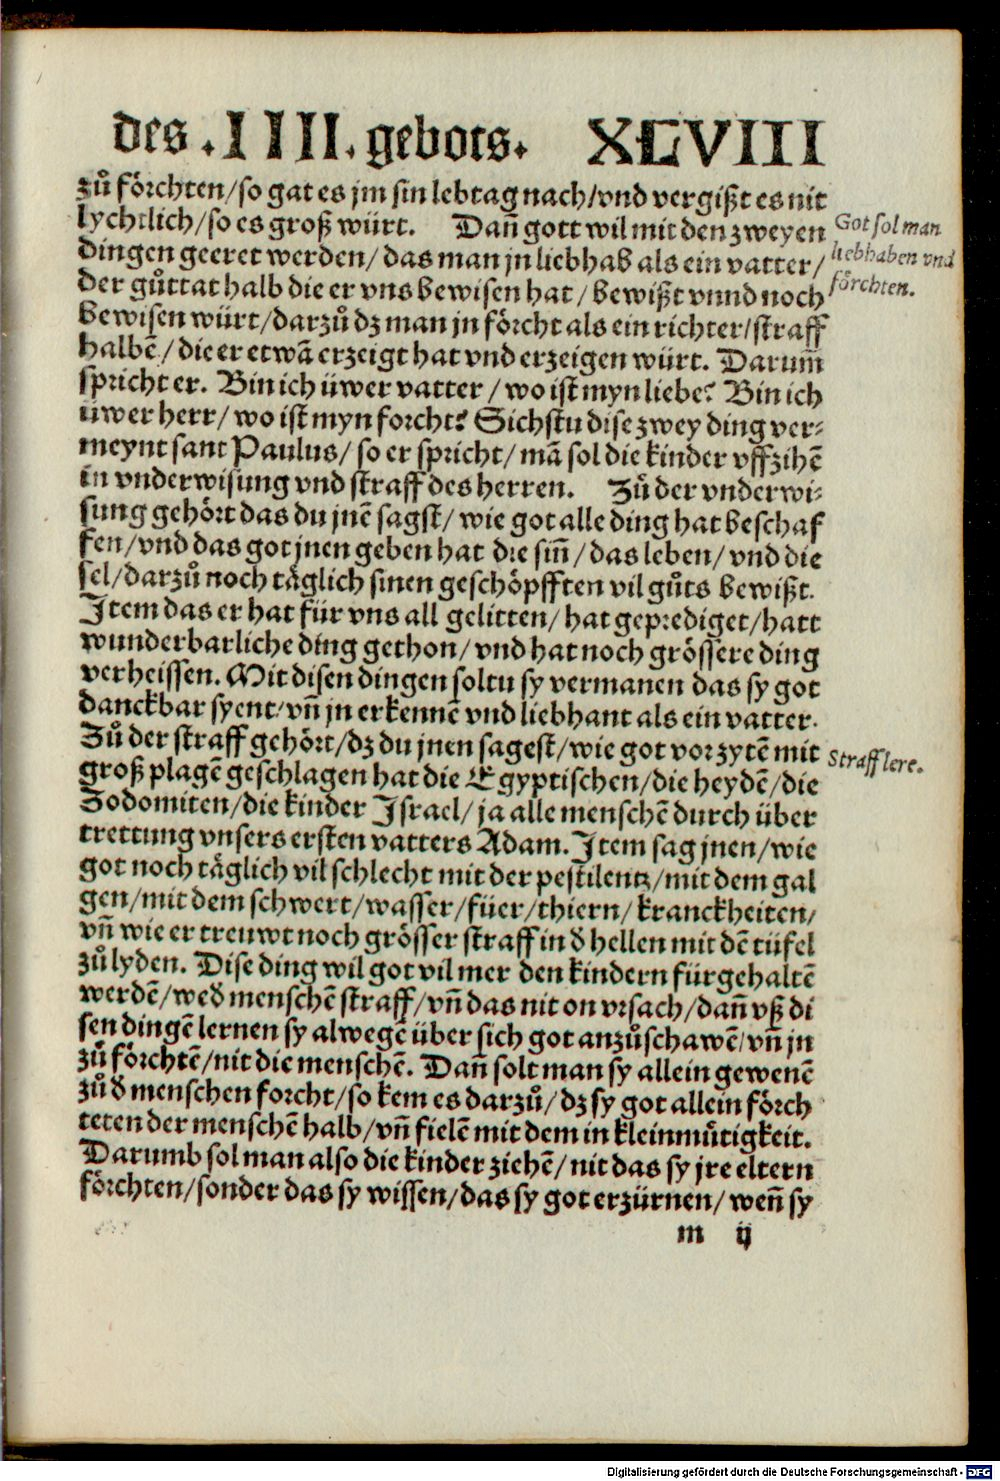 des .IIII. gebots. XLVIII
zů förchten/so gat es jm sin lebtag nach/vnd vergißt es nit
lychtlich/so es groß würt. Dañ gott wil mit den zweyen
Got sol man
dingen geeret werden/ das man jn liebhab als ein vatter/
liebhaben vnd
der gůttat halb die er vns bewisen hat/ bewißt vnnd noch
förchten.
bewisen würt/darzů dz man jn förcht als ein richter/straff
halbē/ die er etwā erzeigt hat vnd erzeigen würt. Darum̃
spricht er. Bin ich üwer vatter/ wo ist myn liebe? Bin ich
üwer herr/ wo ist myn forcht? Sichstu dise zwey ding ver⸗
meynt sant Paulus/ so er spricht/ mā sol die kinder vffzihē
in vnderwisung vnd straff des herren. Zů der vnderwi⸗
sung gehört das du jnē sagst/ wie got alle ding hat beschaf
fen/vnd das got jnen geben hat die sin̄/ das leben/ vnd die
sel/darzů noch täglich sinen geschöpfften vil gůts bewißt.
Item das er hat für vns all gelitten/ hat geprediget/hatt
wunderbarliche ding gethon/ vnd hat noch grössere ding
verheissen. Mit disen dingen soltu sy vermanen das sy got
danckbar syent/vñ jn erkennē vnd liebhant als ein vatter.
Zů der straff gehört/dz du jnen sagest/wie got vor zytē mit
Straff lere.
groß plagē geschlagen hat die Egyptischen/die heydē/die
Zodomiten/die kinder Israel/ ja alle menschē durch über
trettung vnsers ersten vatters Adam. Item sag jnen/wie
got noch täglich vil schlecht mit der pestilentz/mit dem gal
gen/mit dem schwert/wasser/füer/thiern/ kranckheiten/
vñ wie er treuwt noch grösser straff in d̕ hellen mit dē tüfel
zů lyden. Dise ding wil got vil mer den kindern fürgehaltē
werdē/wed̕ menschē straff/vñ das nit on vrsach/dañ vß di
sen dingē lernen sy alwegē über sich got anzůschawē/vñ jn
zů förchtē/nit die menschē. Dañ solt man sy allein gewenē
zů d̕ menschen forcht/so kem es darzů/ dz sy got allein förch
teten der menschē halb/vñ fielē mit dem in kleinmůtigkeit.
Darumb sol man also die kinder ziehē/nit das sy jre eltern
förchten/sonder das sy wissen/das sy got erzürnen/ weñ sy
m ij
Digitalisierung gefördert durch die Deutsche Forschungsgemeinschaft - DFG